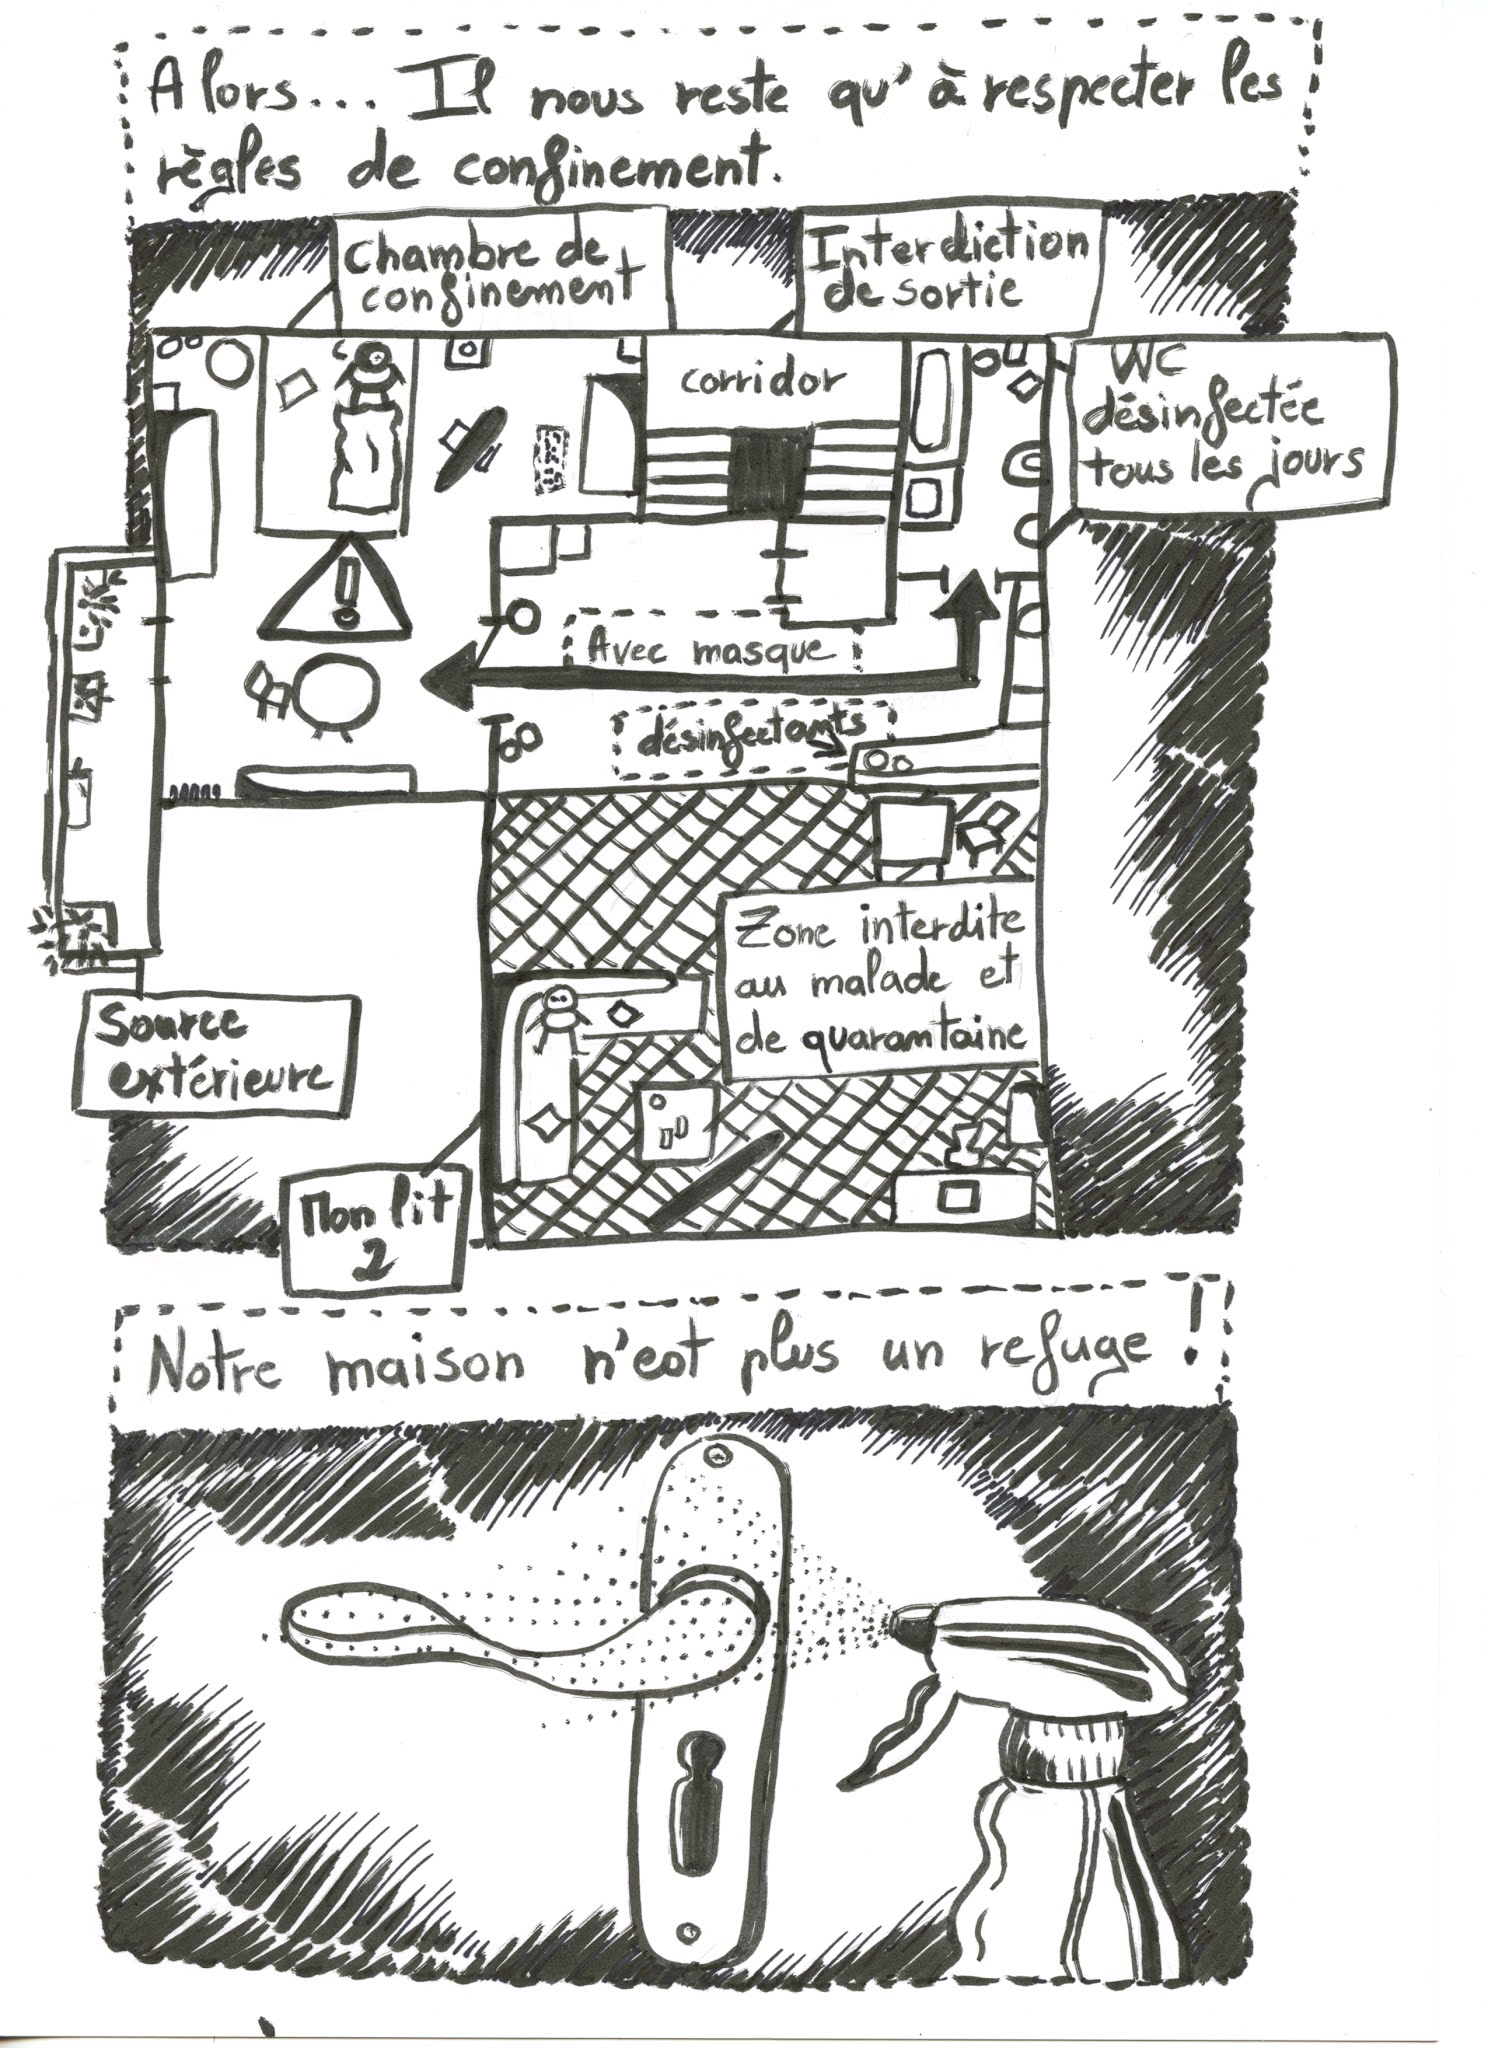 Alors... Il nous reste qu'à respecter les
règles de confinement.
Chambre de
confinement
Interdiction
de sortie
corridor
WC
désinfectée
tous les jours
Avec masque
désinfectants
Zone interdite
au malade et
de quarantaine
Source
extérieure
Mon lit
2
Notre maison n'est plus un refuge !